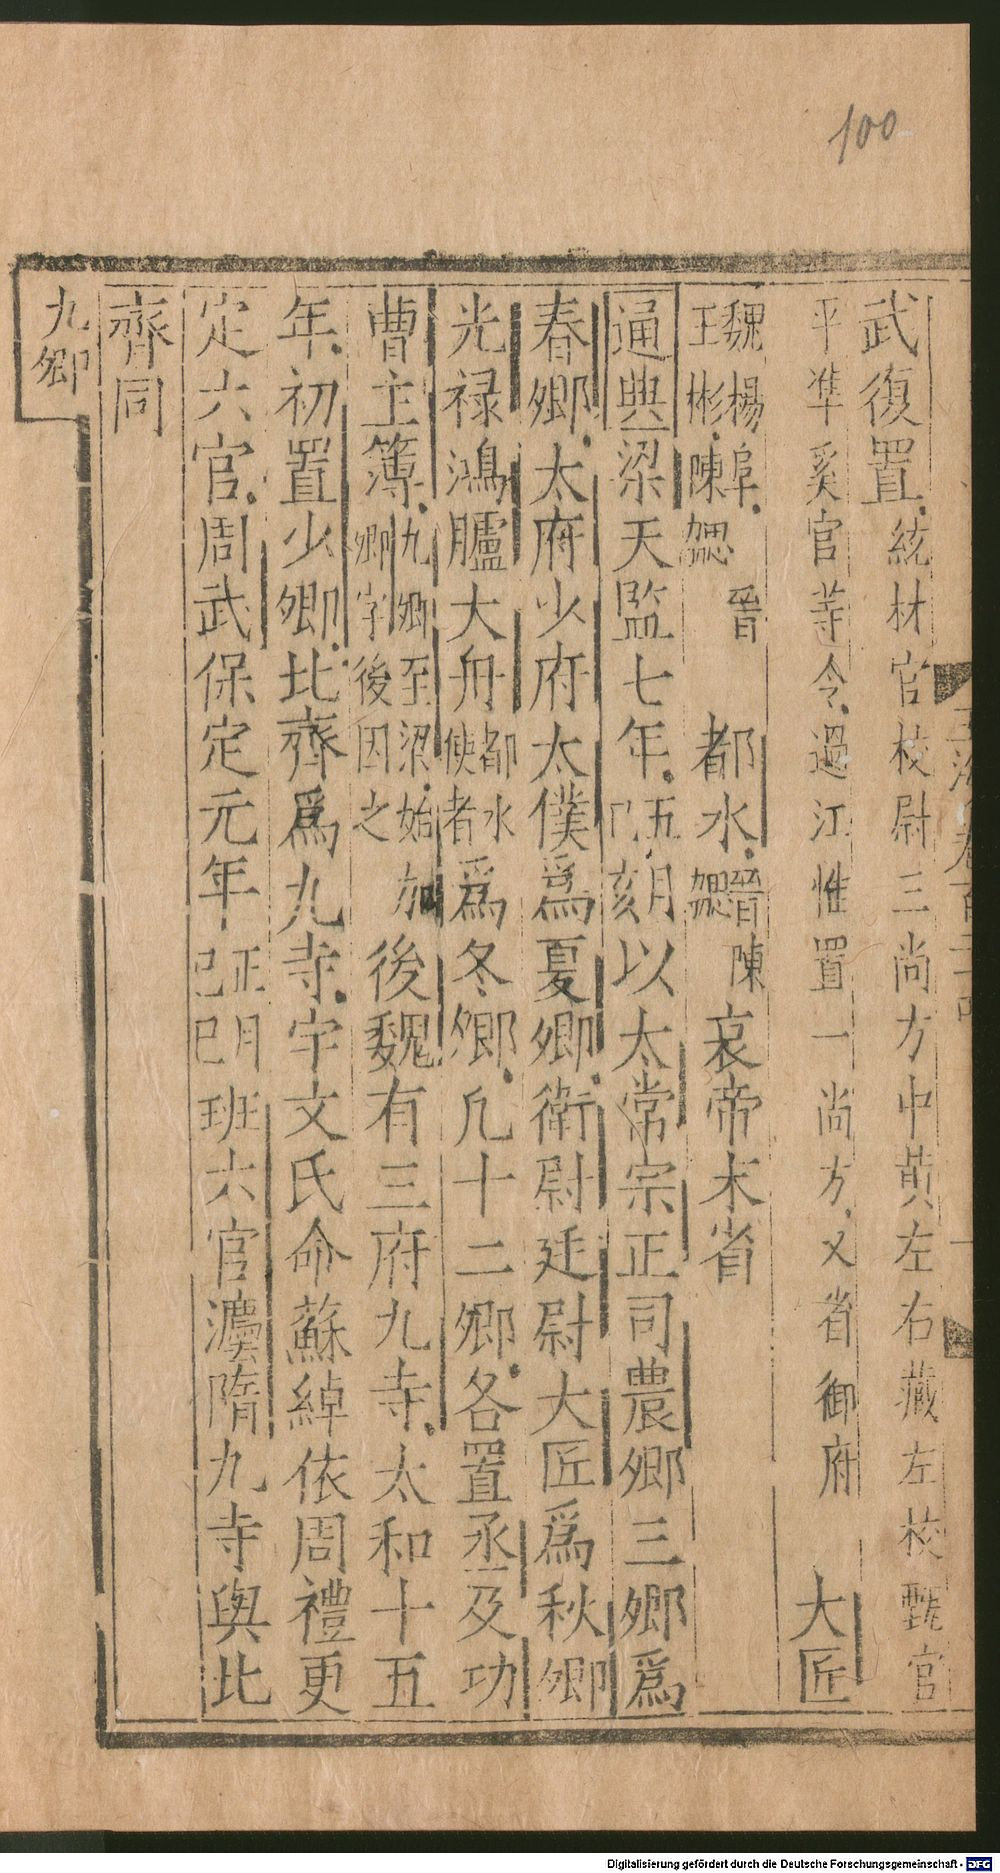 100
武復置統材官校尉三尚方中黃左右藏左校甄官
平準奚官等令過江惟置一尚方又省御府 大匠
魏楊阜
王彬陳勰 晉 都水晉陳
勰 哀帝末省
通典梁天監七年五月
己亥以太常宗正司農卿三卿爲
春卿太府少府太僕爲夏卿衛尉廷尉大匠爲秋卿
光禄鴻臚大舟都水
使者爲冬卿凡十二卿各置丞及功
曹主簿九卿至梁始加
卿字後因之後魏有三府九寺太和十五
年初置少卿北齊爲九寺宇文氏命蘇綽依周禮更
定六官周武保定元年正月
己巳班六官灋隋九寺與北
齊同
九卿
Digitalisierung gefördert durch die Deutsche Forschungsgemeinschaft - DFG